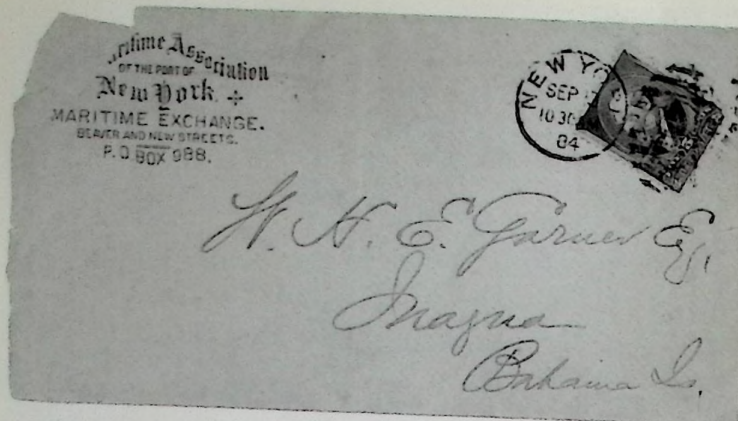 ritime Association
OF THE PORT OF
New York
MARITIME EXCHANGE.
BEAVER AND NEW STREETS.
P.O BOX 988.
NEW YO
SEP
10 30
84
W. H. E. Garner Esq.
Inagua
Bahama Is.